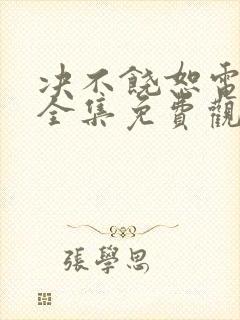 决不饶恕電
全集免費觀
張學思